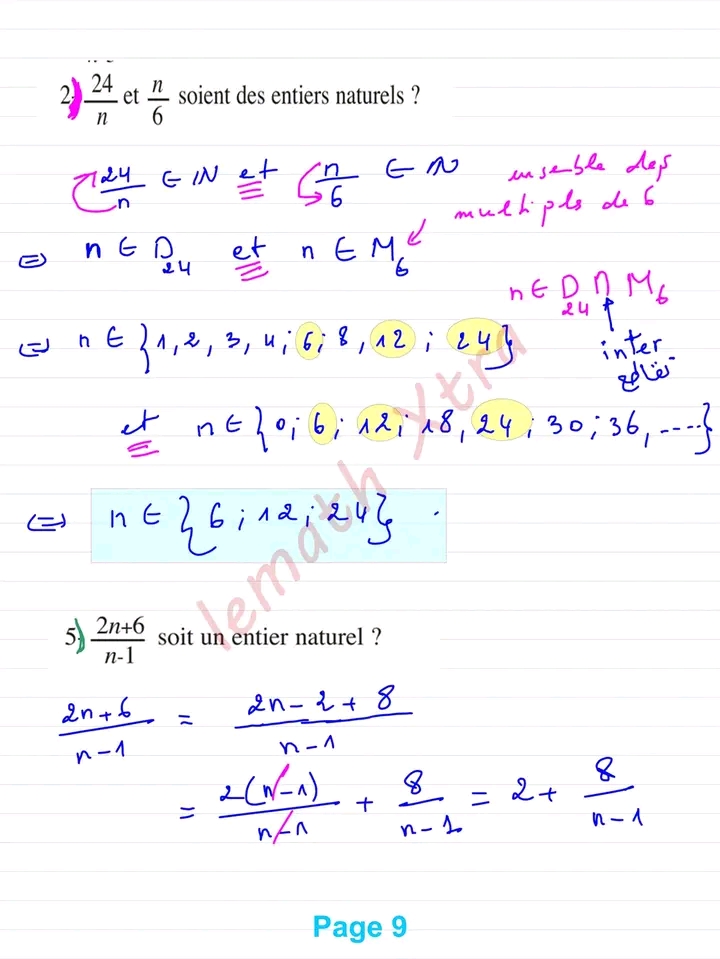 2) 24/n et n/6 soient des entiers naturels ?
24/n ∈ IN et n/6 ∈ IN
ensemble des
multiples de 6
⇔ n ∈ D₂₄ et n ∈ M₆
n ∈ D₂₄ ∩ M₆
inter
تقاطع
⇔ n ∈ {1, 2, 3, 4; 6; 8, 12; 24}
et n ∈ {0; 6; 12; 18, 24; 30; 36, ....}
⇔ n ∈ {6; 12; 24} .
lemath Xtra
5) 2n+6/n-1 soit un entier naturel ?
2n+6/n-1 = 2n-2+8/n-1
= 2(n-1)/n-1 + 8/n-1 = 2 + 8/n-1
Page 9